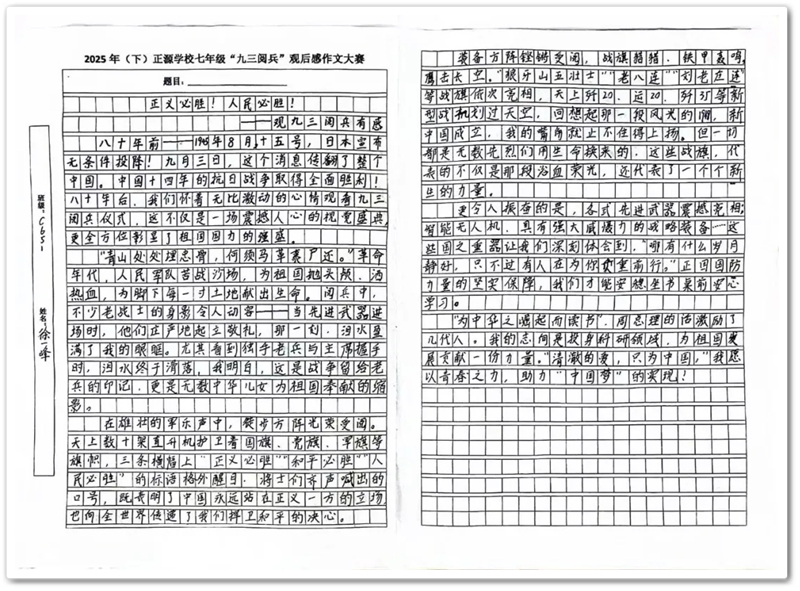 2025年（下）正源学校七年级“九三阅兵”观后感作文大赛
题目：
正义必胜！人民必胜！
——观九三阅兵有感
八十年前——1945年8月十五号，日本宣布
无条件投降！九月三日，这个消息传翻了整个
中国。中国十四年的抗日战争取得全面胜利！
八十年后，我们怀着无比激动的心情观看九三
阅兵仪式，这不仅是一场震撼人心的视觉盛典，
更全方位彰显了祖国国力的强盛。
“青山处处埋忠骨，何须马革裹尸还。”革命
年代，人民军队苦战沙场，为祖国抛头颅、洒
热血，为脚下每一寸土地献出生命。阅兵中，
不少老战士的身影令人动容——当先进武器进
场时，他们在庄地起立敬礼，那一刻，泪水盈
满了我的眼眶。尤其看到独手老兵与主席握手
时，泪水终于滑落，我明白，这是战争留给老
兵的印记，更是无数中华儿女为祖国奉献的缩
影。
在雄壮的军乐声中，徒步方阵光荣受阅。
天上数十架直升机护卫着国旗、党旗、军旗等
旗帜，三条横幅上“正义必胜”“和平必胜”“人
民必胜”的标语格外醒目，将士们齐声喊出的
口号，既表明了中国永远站在正义一方的立场
也向全世界传递了我们捍卫和平的决心。
班级：C651
姓名：徐峰
装备方阵铿锵受阅，战旗猎猎，铁甲轰鸣，
鹰击长空。“狼牙山五壮士”“老八连”“刘老庄连”
等战旗依次亮相，天上歼20、运20、歼35等新
型战机划过天空，回想起那一段风光的阅，新
中国成立，我的嘴角就止不住得上扬。但一切
都是无数先烈们用生命换来的，这些战旗，代
表的不仅是那段浴血荣光，还代表了一个个新
生的力量。
更令人振奋的是，各式先进武器震撼亮相；
智能无人机、具有强大威慑力的战略装备……这
些国之重器让我们深刻体会到，“哪有什么岁月
静好，只不过有人在为你负重前行。”正因国防
力量的坚实保障，我们才能安稳坐书桌前安心
学习。
“为中华之崛起而读书”，周总理的话激励了
几代人。我的志向是投身科研领域，为祖国发
展贡献一份力量。“清澈的爱，只为中国，”我愿
以青春之力，助力“中国梦”的实现！